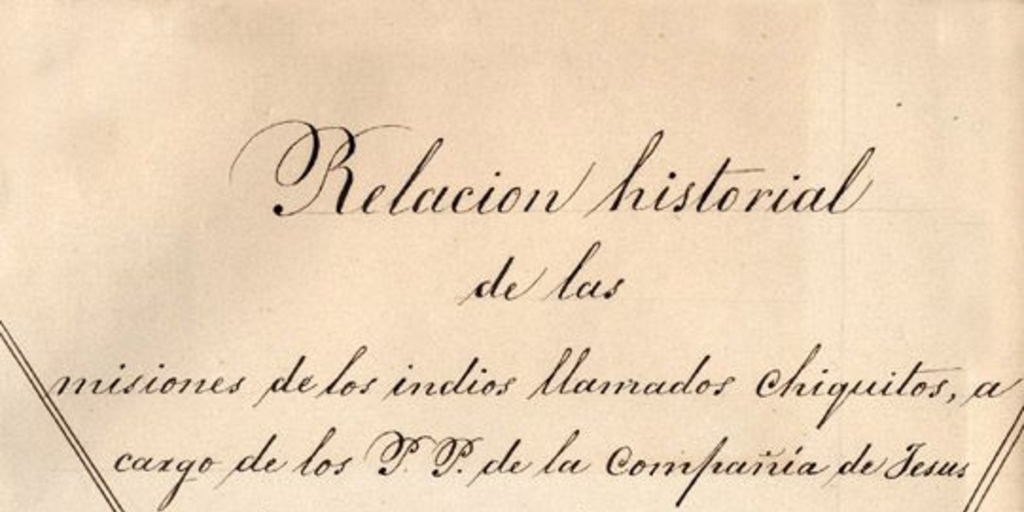 Relacion historial
de las
misiones de los indios llamados Chiquitos, a
cargo de los P. P. de la Compañía de Jesus